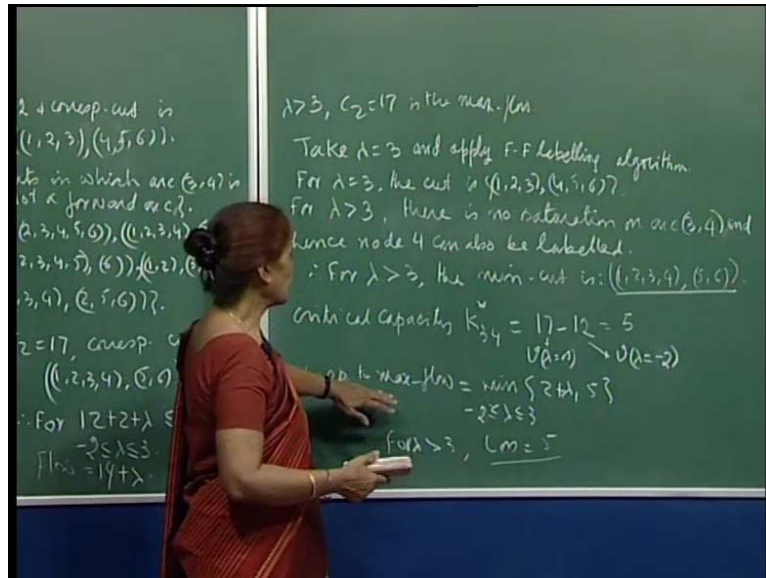 2 & corresp. cut is
((1,2,3),(4,5,6)).
in which arc (3,4) is
not a forward arc}.
(2,3,4,5,6)), ((1,2,3,4)
2,3,4,5), (6)), (1,2), (3
,3,4), (2,5,6))}.
2 = 17, corresp. c
((1,2,3,4), (5,6)
∴ For 12+2+λ ≤
-2≤λ≤3.
Flow = 14+λ.
λ>3, C₂=17 is the max-flow.
Take λ=3 and apply F-F labelling algorithm.
For λ=3, the cut is {(1,2,3),(4,5,6)}.
For λ>3, there is no saturation on arc (3,4) and
hence node 4 can also be labelled.
∴ For λ>3, the min-cut is: ((1,2,3,4), (5,6)).
critical capacity K*₃₄ = 17-12 = 5
v(λ=-2)
to max-flow = min {2+λ, 5}
-2≤λ≤3
For λ>3, = 5